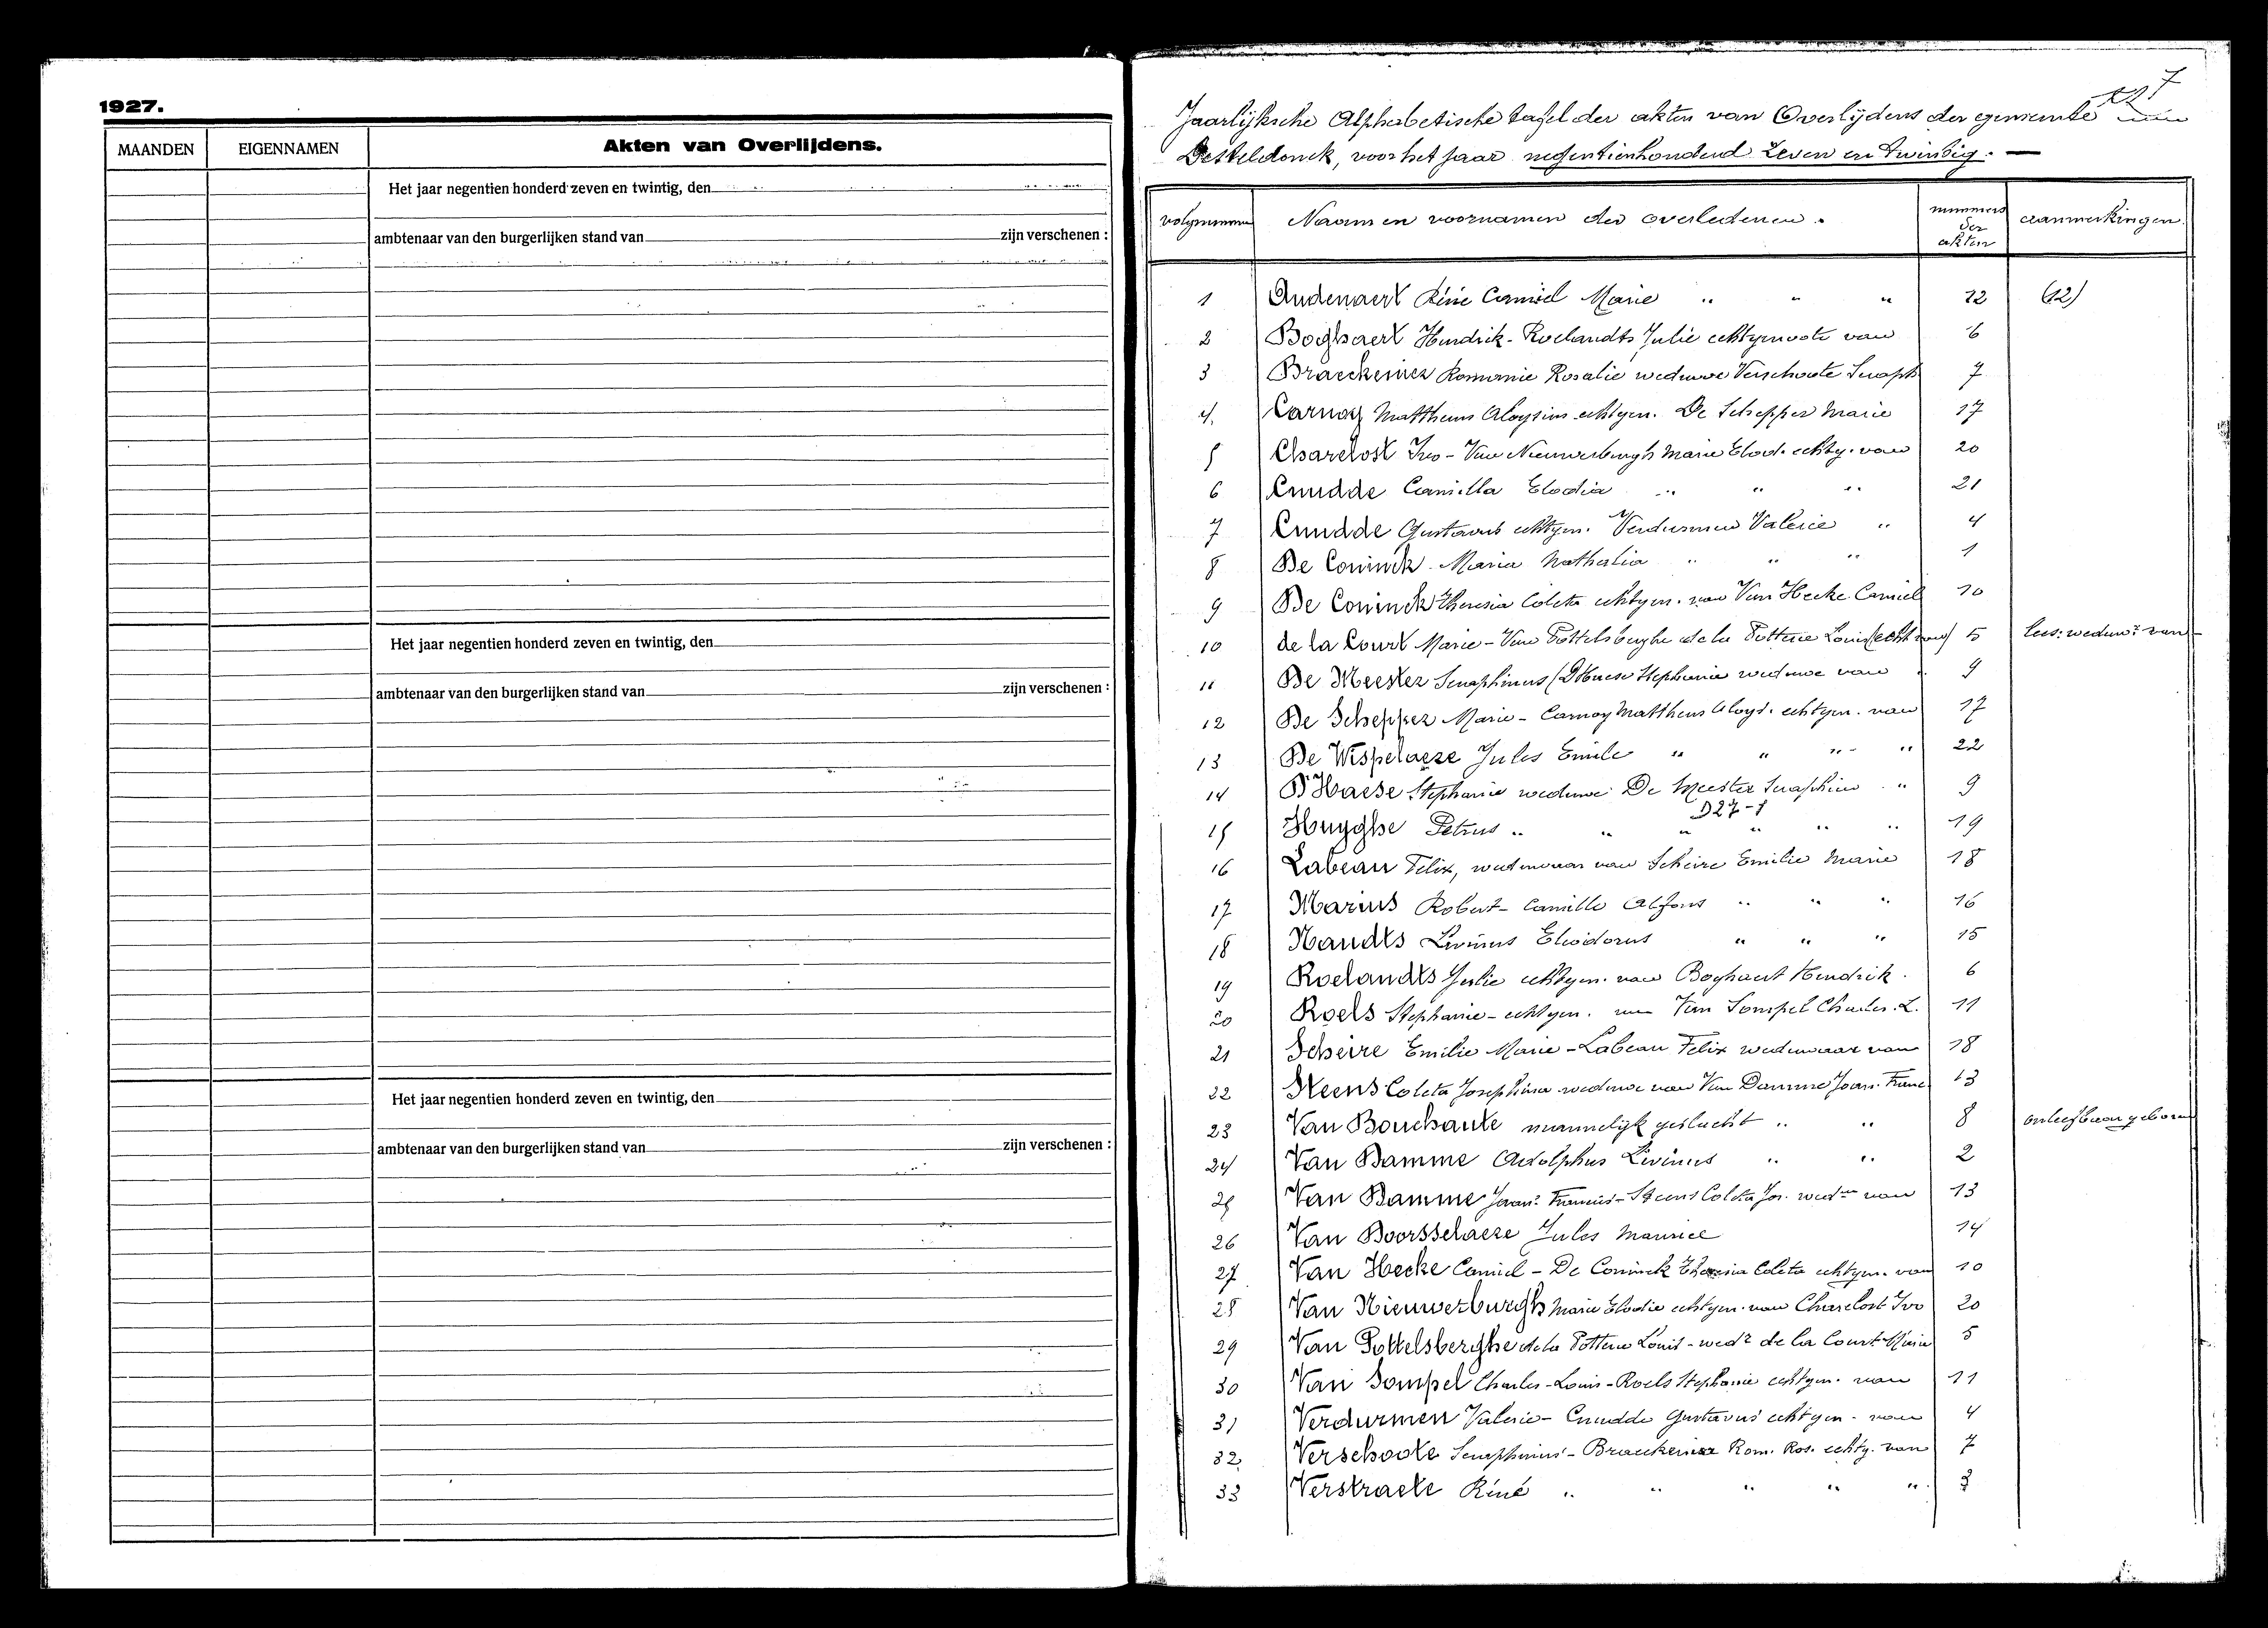 1927.
MAANDEN EIGENNAMEN Akten van Overlijdens.
Het jaar negentien honderd zeven en twintig, den
ambtenaar van den burgerlijken stand van zijn verschenen :
Het jaar negentien honderd zeven en twintig, den
ambtenaar van den burgerlijken stand van zijn verschenen :
Het jaar negentien honderd zeven en twintig, den
ambtenaar van den burgerlijken stand van zijn verschenen :
7
Jaarlijksche Alphabetische tafel der akten van Overlijdens der gemeente
Desteldonck, voor het jaar negentienhonderd zeven en twintig. —
Naam en voornamen der overledenen. nummers der akten aanmerkingen.
1 Audenaert Réné Camiel Marie " " " 12 (12)
2 Boghaert Hendrik - Roelandts Julie echtgenoote van 6
3 Braeckeniez Romanie Rosalie weduwe Verschoote Seraph 7
4. Carnoy Mattheus Aloysius echtgen. De Schepper Marie 17
5 Charelost Ivo - Van Nieuwerburgh Marie Elod. echtg. van 20
6 Cnudde Camilla Elodia " " " 21
7 Cnudde Gustavus echtgen. Verdurmen Valerie " 4
8 De Coninck Maria Nathalia " " " 1
9 De Coninck Theresia Coleta echtgen. van Van Hecke Camiel 10
10 de la Court Marie - Van Pottelsberghe de la Potterie Louis (echt van) 5 lees: weduwe van
11 De Meester Seraphinus (D'Haese Stephanie weduwe van 9
12 De Schepper Marie - Carnoy Mattheus Aloys. echtgen. van 17
13 De Wispelaere Jules Emile " " " " 22
14 D'Haese Stephanie weduwe De Meester Seraphien " 9
D27-1
15 Huyghe Petrus " " " " " " 19
16 Labeau Felix, weduwnaar van Scheire Emilie Marie 18
17 Marius Robert - Camille Alfons " " " 16
18 Naudts Livinus Eliodorus " " " 15
19 Roelandts Julie echtgen. van Boghaert Hendrik. 6
20 Roels Stephanie - echtgen. van Van Sompel Charles. L. 11
21 Scheire Emilie Marie - Labeau Felix weduwnaar van 18
22 Steens Coleta Josephina weduwe van Van Damme Joan. Franc 13
23 Van Bouchaute mannelijk geslacht " " 8 onleefbaar geboren
24 Van Damme Adolphus Livinus " " 2
25 Van Damme Joan. Francies - Steens Coleta Jos. wedwe van 13
26 Van Doorsselaere Jules Maurice 14
27 Van Hecke Camiel - De Coninck Theresia Coleta echtgen. van 10
28 Van Nieuwerburgh Marie Elodie echtgen. van Charelost Ivo 20
29 Van Pottelsberghe de la Potterie Louis - wedr de la Court Marie 5
30 Van Sompel Charles - Louis - Roels Stephanie echtgen. van 11
31 Verdurmen Valerie - Cnudde Gustavus echtgen. van 4
32. Verschoote Seraphinus - Braeckeniez Rom. Ros. echtg. van 7
33 Verstraete Réné " " " " " 3